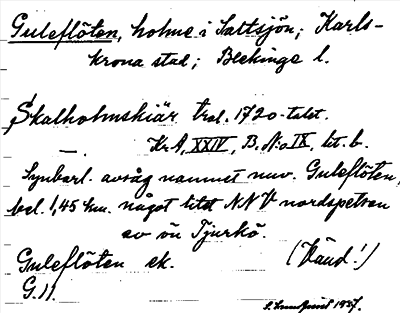 Guleflöten, holme i Saltsjön; Karls-
krona stad; Blekinge l.
Skalholmskiär trol. 1720-talet.
Kr. A, XXIV, B, N:o IX, lit. b.
Synbarl. avsåg namnet nuv. Guleflöten,
bel. 1,45 km. något litet NNV nordspetsen
av ön Tjurkö.
Guleflöten ek. (Vänd!)
G.11.
1927.